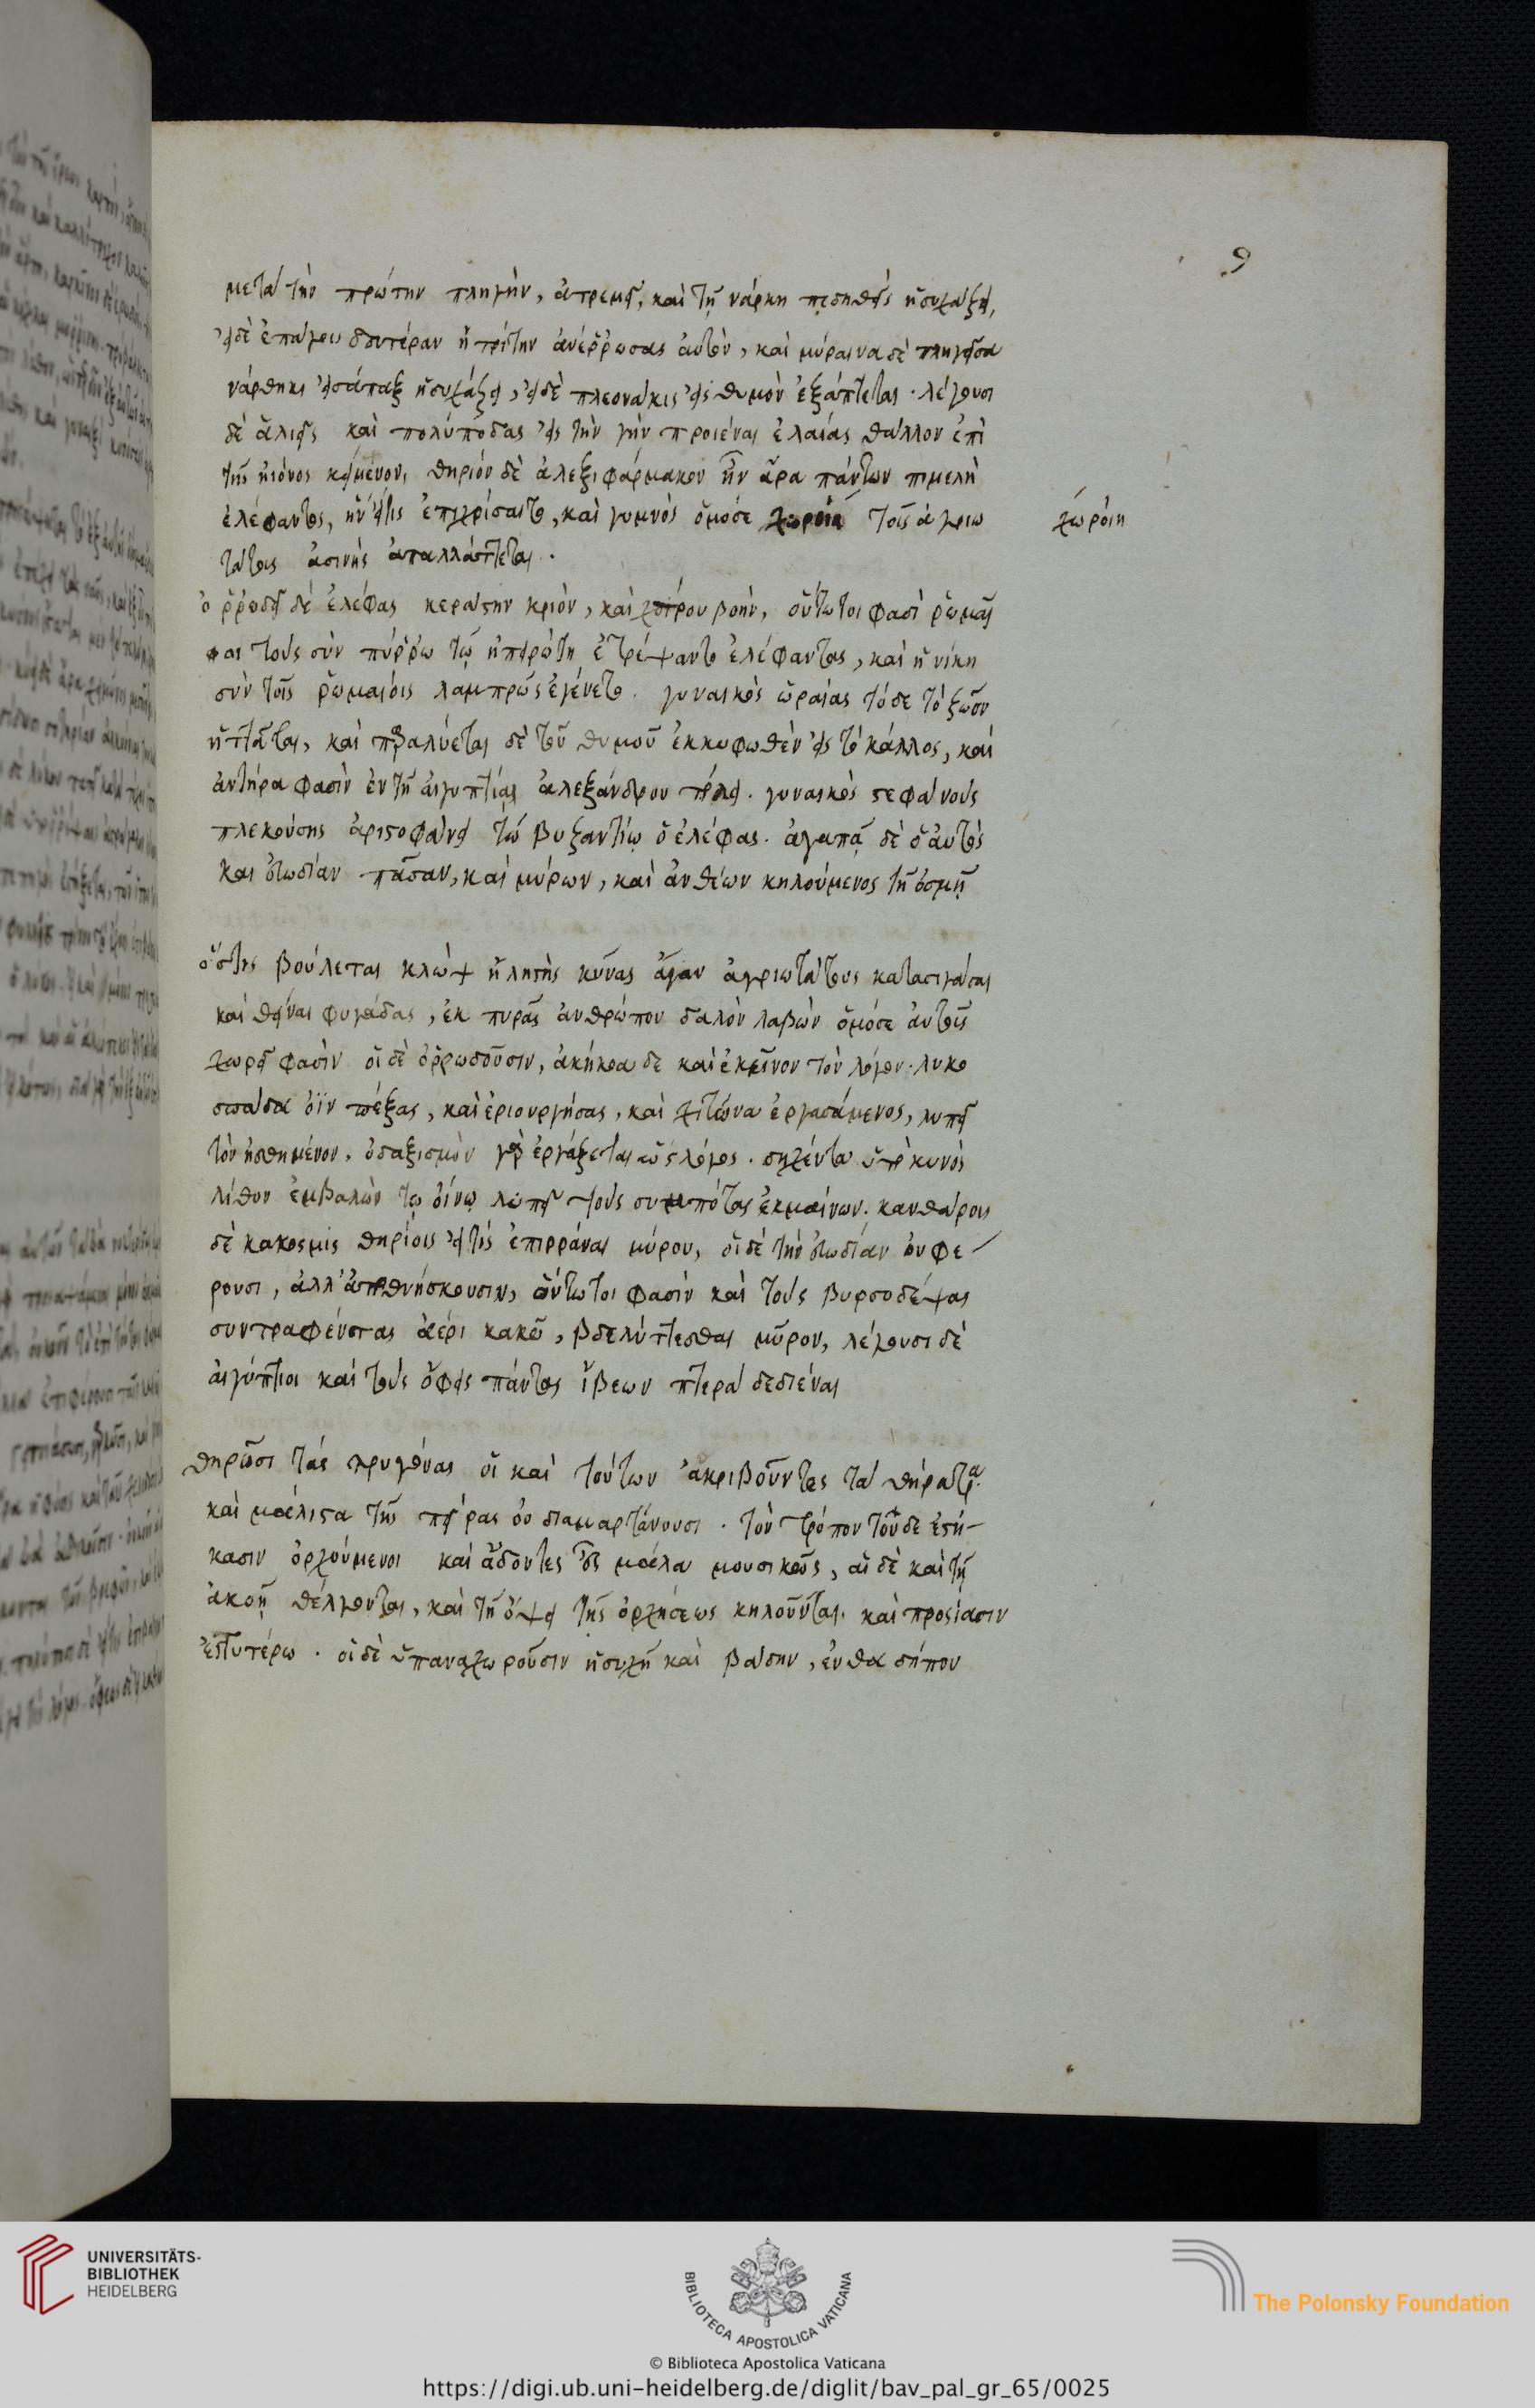 9
μετὰ τὴν πρώτην πληγὴν, ἀτρεμεῖ, καὶ τῇ νάρκῃ πεδηθεὶς ἡσυχάζει,
εἰ δὲ ἐπάγοις δευτέραν ἢ τρίτην ἀνέρρωσας αὐτὸν, καὶ μύραινα δὲ πληγεῖσα
νάρθηκι εἰσάπαξ ἡσυχάζει, εἰ δὲ πλεονάκις εἰς θυμὸν ἐξάπτεται. λέγουσι
δὲ ἁλιεῖς καὶ πολύποδας εἰς τὴν γῆν προιέναι ἐλαίας θάλλον ἐπὶ
τῆς ἠϊόνος κειμένον, θηρίον δὲ ἀλεξιφάρμακον ἦν ἄρα πάντων πιμελὴ
ἐλέφαντος, ἣν εἴ τις ἐπιχρίσαιτο, καὶ γυμνὸς ὁμόσε χωροίη τοῖς ἀγριω
χωροίη
τάτοις ἀσινὴς ἀπαλλάττεται.
ὀρρωδεῖ δὲ ἐλέφας κεράστην κριὸν, καὶ χοίρου βοὴν, οὕτω τοι φασὶ ῥωμαῖ
οι τοὺς σὺν πύρρω τῷ ἠπειρώτη ἐτρέψαντο ἐλέφαντας, καὶ ἡ νίκη
σὺν τοῖς ῥωμαίοις λαμπρῶς ἐγένετο. γυναικὸς ὡραίας τόδε τὸ ζῶον
ἡττᾶται, καὶ παραλύεται δὲ τοῦ θυμοῦ ἐκκωφωθὲν εἰς τὸ κάλλος, καὶ
ἀντήρα φασὶν ἐν τῇ αἰγυπτίᾳ ἀλεξάνδρου πόλει. γυναικὸς στεφάνους
πλεκούσης ἀριστοφάνει τῷ βυζαντίῳ ὁ ἐλέφας. ἀγαπᾷ δὲ ὁ αὐτὸς
καὶ εὐωδίαν πᾶσαν, καὶ μύρων, καὶ ἀνθέων κηλούμενος τῇ ὀσμῇ
ὅστις βούλεται κλὼψ ἢ λῃστὴς κύνας ἄγαν ἀγριωτάτους κατασιγάσαι
καὶ θεῖναι φυγάδας, ἐκ πυρᾶς ἀνθρώπου δαλὸν λαβὼν ὁμόσε αὐτοῖς
χωρεῖ φασὶν οἱ δὲ ὀρρωδοῦσιν, ἀκήκοα δὲ καὶ ἐκεῖνον τὸν λόγον. λυκο
σπάδα ὄϊν πέξας, καὶ ἐριουργήσας, καὶ χιτῶνα ἐργασάμενος, λυπεῖ
τὸν ἠσθημένον. ὀδαξισμὸν γὰρ ἐργάζεται ὡς λόγος. δηχέντα ὑπὸ κυνὸς
λίθον ἐμβαλὼν τῷ οἴνῳ λυπεῖ τοὺς συμπότας ἐκμαίνων. κανθάροις
δὲ κακόσμοις θηρίοις εἴ τις ἐπιρράναι μύρου, οἱ δὲ τὴν εὐωδίαν οὐ φέ-
ρουσι, ἀλλ' ἀποθνήσκουσιν, οὕτω τοι φασὶν καὶ τοὺς βυρσοδέψας
συντραφέντας ἀέρι κακῷ, βδελύττεσθαι μῦρον, λέγουσι δὲ
αἰγύπτιοι καὶ τοὺς ὄφεις πάντας ἴβεων πτερὰ δεδιέναι
θηρῶσι τὰς τρυγόνας οἱ καὶ τούτων ἀκριβοῦντες τὰ θήρατρα
καὶ μάλιστα τῆς πείρας οὐ διαμαρτάνουσι. τὸν τρόπον τοῦδε ἑστή-
κασιν ὀρχούμενοι καὶ ᾄδοντες εὖ μάλα μουσικῶς, αἱ δὲ καὶ τῇ
ἀκοῇ θέλγονται, καὶ τῇ ὄψει τῆς ὀρχήσεως κηλοῦνται. καὶ προσίασιν
ἐγγυτέρω. οἱ δὲ ὑπαναχωροῦσιν ἡσυχῆ καὶ βάδην, ἔνθα δήπου
UNIVERSITÄTS-
BIBLIOTHEK
HEIDELBERG
BIBLIOTECA APOSTOLICA VATICANA
The Polonsky Foundation
© Biblioteca Apostolica Vaticana
https://digi.ub.uni-heidelberg.de/diglit/bav_pal_gr_65/0025